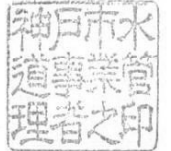 神戸市水
道事業管
理者之印